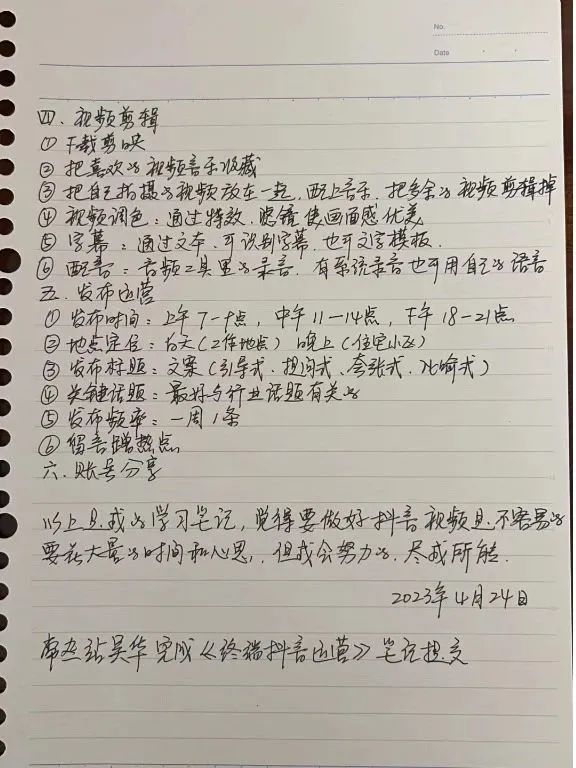 No.
Date
四. 视频剪辑
① 下载剪映
② 把喜欢的视频音乐收藏
③ 把自己拍摄的视频放在一起, 配上音乐, 把多余的视频剪辑掉
④ 视频调色: 通过特效. 滤镜使画面感优美
⑤ 字幕: 通过文本. 可识别字幕. 也可文字模板.
⑥ 配音: 音频工具里的录音. 有系统录音也可用自己的语音
五. 发布运营
① 发布时间: 上午7-9点, 中午11-14点, 下午18-21点
② 地点定位: 白天(工作地点) 晚上(住宅小区)
③ 发布标题: 文案(引导式. 提问式. 夸张式. 比喻式)
④ 关键话题: 最好与行业话题有关的
⑤ 发布频率: 一周1条
⑥ 留言蹭热点
六. 账号分享
以上是我的学习笔记, 觉得要做好抖音视频是不容易的
要花大量的时间和心思, 但我会努力的, 尽我所能.
2023年4月24日
常熟站吴华完成《终端抖音运营》笔记提交